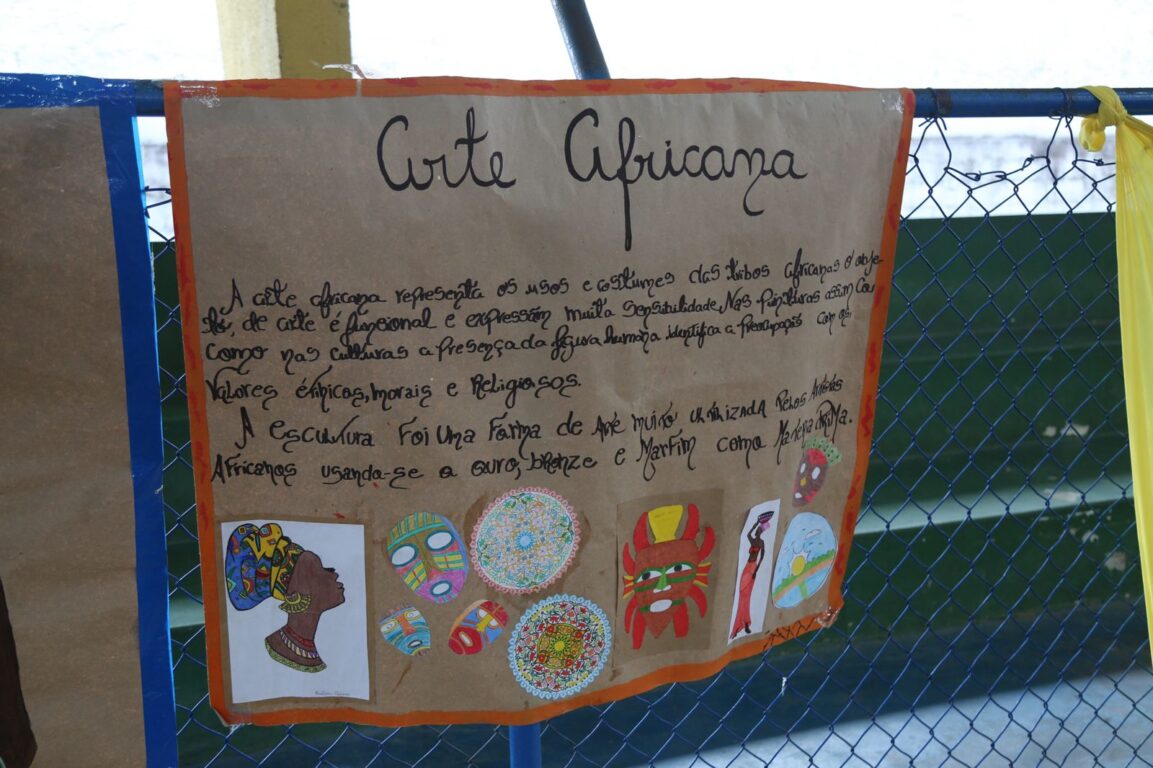 Arte Africana
A arte africana representa os usos e costumes das tribos africanas o obje-
to, de arte é funcional e expressam muita sensibilidade. Nas pinturas assim Co
Como nas culturas a presença da figura humana identifica a preocupação com os
Valores étnicos, morais e Religiosos.
A escultura Foi Uma Forma de Arte muito utilizada Pelos Artistas
Africanos usando-se o ouro, bronze e Marfim como Materia Prima.